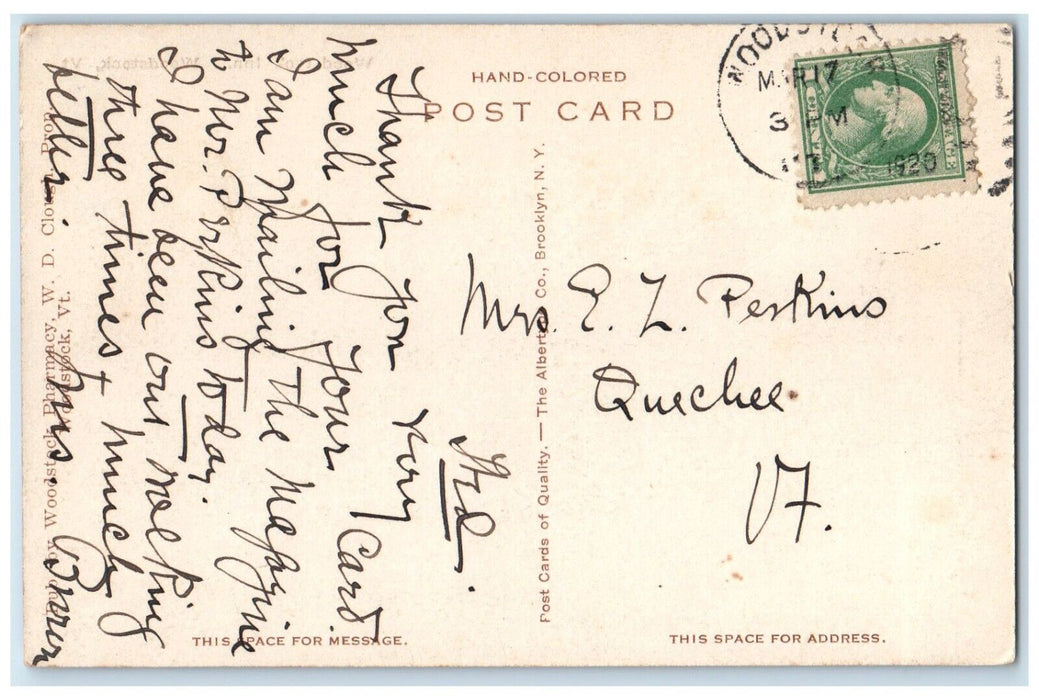 HAND-COLORED
POST CARD
WOODSTOCK
MAR 17
3 PM
1920
Wed.
Thank you very
much for your card
I am mailing the magazine
to Mr. Perkins today.
I have been out walking
three times & much
better.
Mrs. E. L. Perkins
Quechee
VT.
Post Cards of Quality. — The Albertype Co., Brooklyn, N. Y.
Woodstock Pharmacy, W. D. Clough, Prop.
Woodstock, Vt.
THIS SPACE FOR MESSAGE.
THIS SPACE FOR ADDRESS.